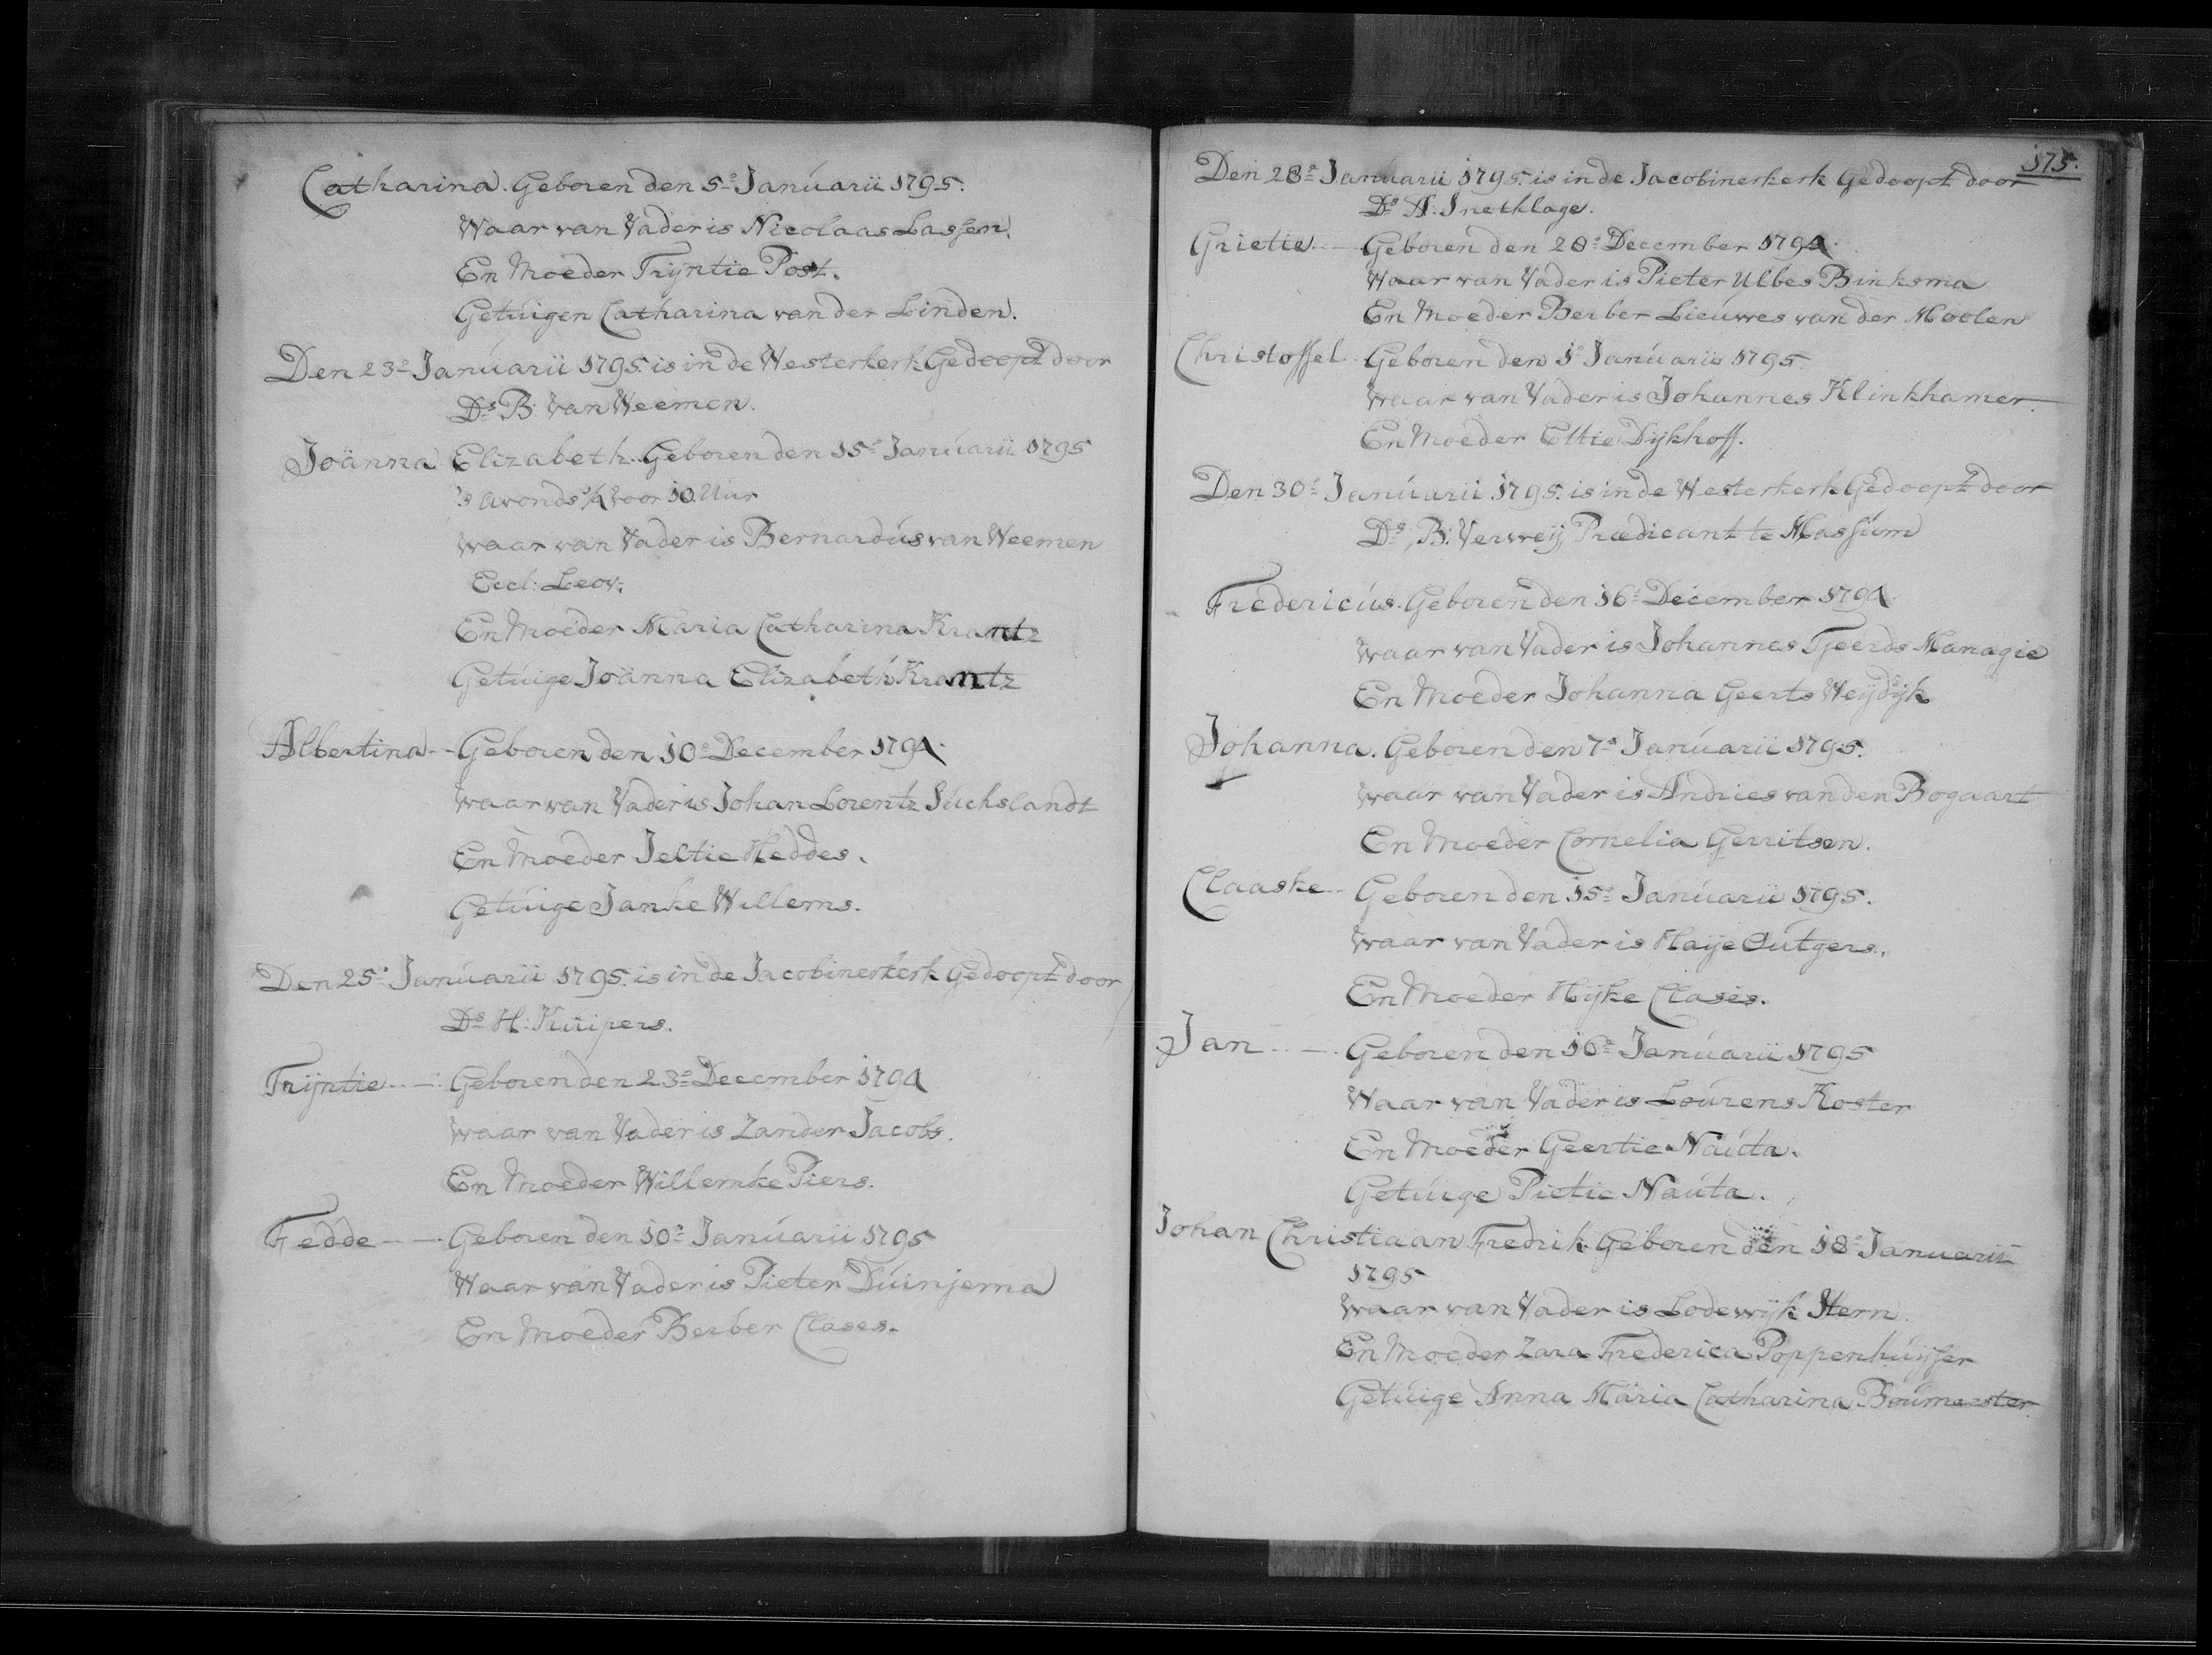 Catharina. Geboren den 5e Januarii 1795.
Waar van Vader is Nicolaas Lassen.
En Moeder Trijntie Post.
Getuigen Catharina van der Linden.
Den 23e Januarii 1795. is in de Westerkerk Gedoopt door
Ds B. van Weemen.
Joänna Elizabeth. Geboren den 15e Januarii 1795
's avonds voor 10 Uur
waar van Vader is Bernardus van Weemen
Eccl: Leov:
En Moeder Maria Catharina Krantz
Getuige Joänna Elizabeth Krantz
Albertina -- Geboren den 10e December 1794.
waar van Vader is Johan Lorentz Suchslandt
En Moeder Jeltie Heddes.
Getuige Janke Willems.
Den 25e Januarii 1795. is in de Jacobinerkerk Gedoopt door
Ds H: Kuipers.
Trijntie -- Geboren den 23e December 1794
waar van Vader is Zander Jacobs.
En Moeder Willemke Piers.
Fedde -- Geboren den 10e Januarii 1795
Waar van Vader is Pieter Duinjema
En Moeder Berber Clases.
175.
Den 28e Januarii 1795. is in de Jacobinerkerk Gedoopt door
Ds A: Snethlage.
Grietie -- Geboren den 28e December 1794.
Waar van Vader is Pieter Ulbes Binksma
En Moeder Berber Lieuwes van der Moolen
Christoffel. Geboren den 1e Januarii 1795.
waar van Vader is Johannes Klinkhamer.
En Moeder Eltie Dijkhoff.
Den 30e Januarii 1795. is in de Westerkerk Gedoopt door
Ds B: Verweij, Prædicant te
Fredericus. Geboren den 16e December 1794.
waar van Vader is Johannes Tjeerds Managie
En Moeder Johanna Geerts Weijdijk
Johanna. Geboren den 7e Januarii 1795.
waar van Vader is Andries van den Bogaart
En Moeder Cornelia Gerritsen.
Claaske -- Geboren den 15e Januarii 1795.
waar van Vader is Haije Outgers.
En Moeder Hijke Clases.
Jan -- Geboren den 16e Januarii 1795
Waar van Vader is Lourens Koster
En Moeder Geertie Nauta.
Getuige Pietie Nauta.
Johan Christiaan Fredrik Geboren den 18e Januarii
1795
waar van Vader is Lodewijk Stern.
En Moeder Zara Frederica Poppenhuijser
Getuige Anna Maria Catharina Boumeester